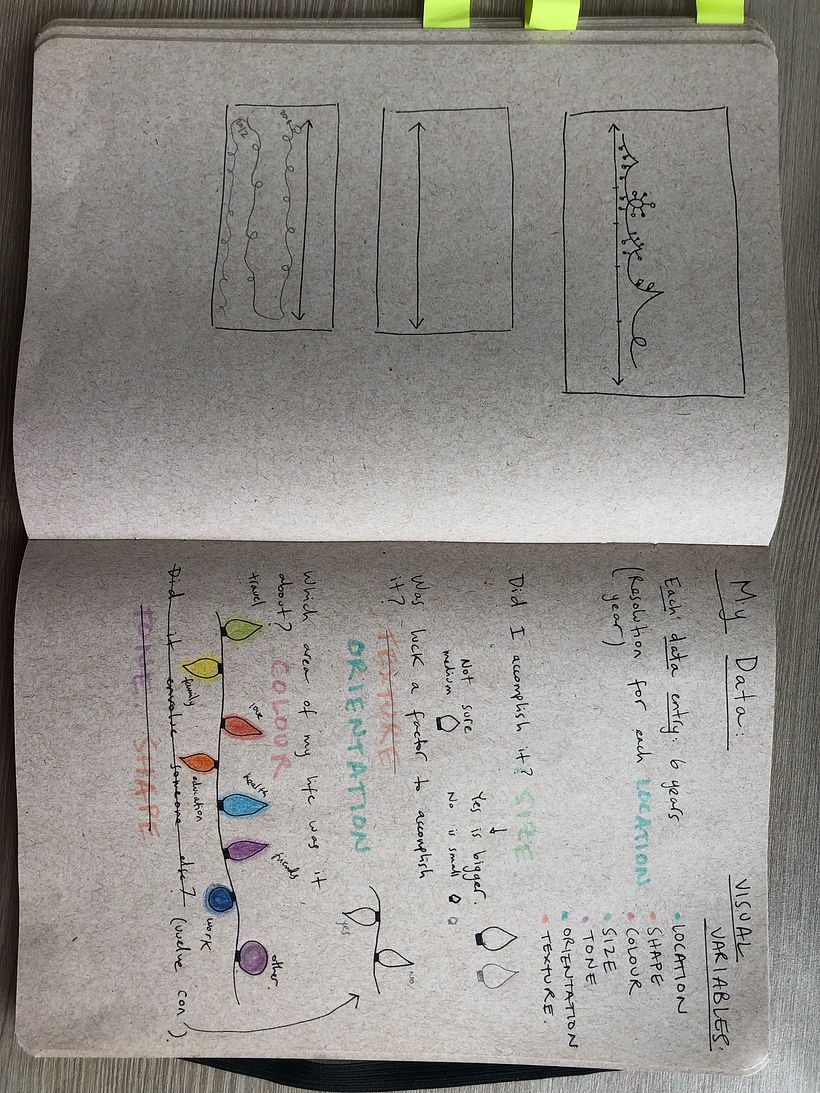 My Data:
Each data entry: 6 years
(Resolution for each LOCATION
year)
VISUAL
VARIABLES:
• LOCATION
• SHAPE
• COLOUR
• SIZE
• TONE
• ORIENTATION
• TEXTURE.
Did I accomplish it? SIZE
Yes is bigger.
No is small
Not sure
medium
Was luck a factor to accomplish
it? TEXTURE
ORIENTATION
yes
NO
Which area of my life was it
about? COLOUR
travel
family
love
education
health
friends
work
other
Did it envolve someone else? (vuelve con).
TONE. SHAPE